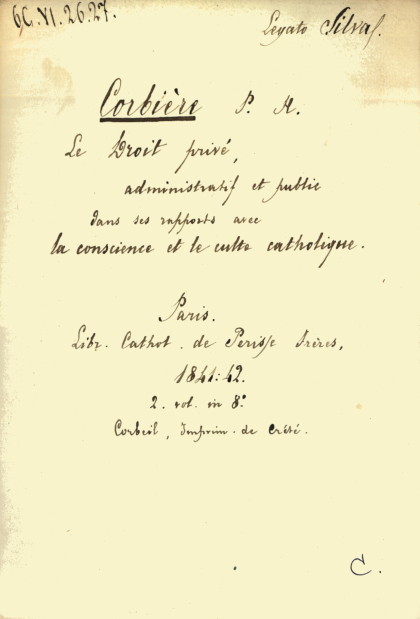 6C.VI.26.27.
Legato Silva
Corbière P. H.
Le Droit privé,
administratif et public
dans ses rapports avec
la conscience et le culte catholique.
Paris.
Libr. Cathol. de Perisse Frères,
1841:42.
2. vol. in 8.°
Corbeil, Imprim. de Crété.
C.